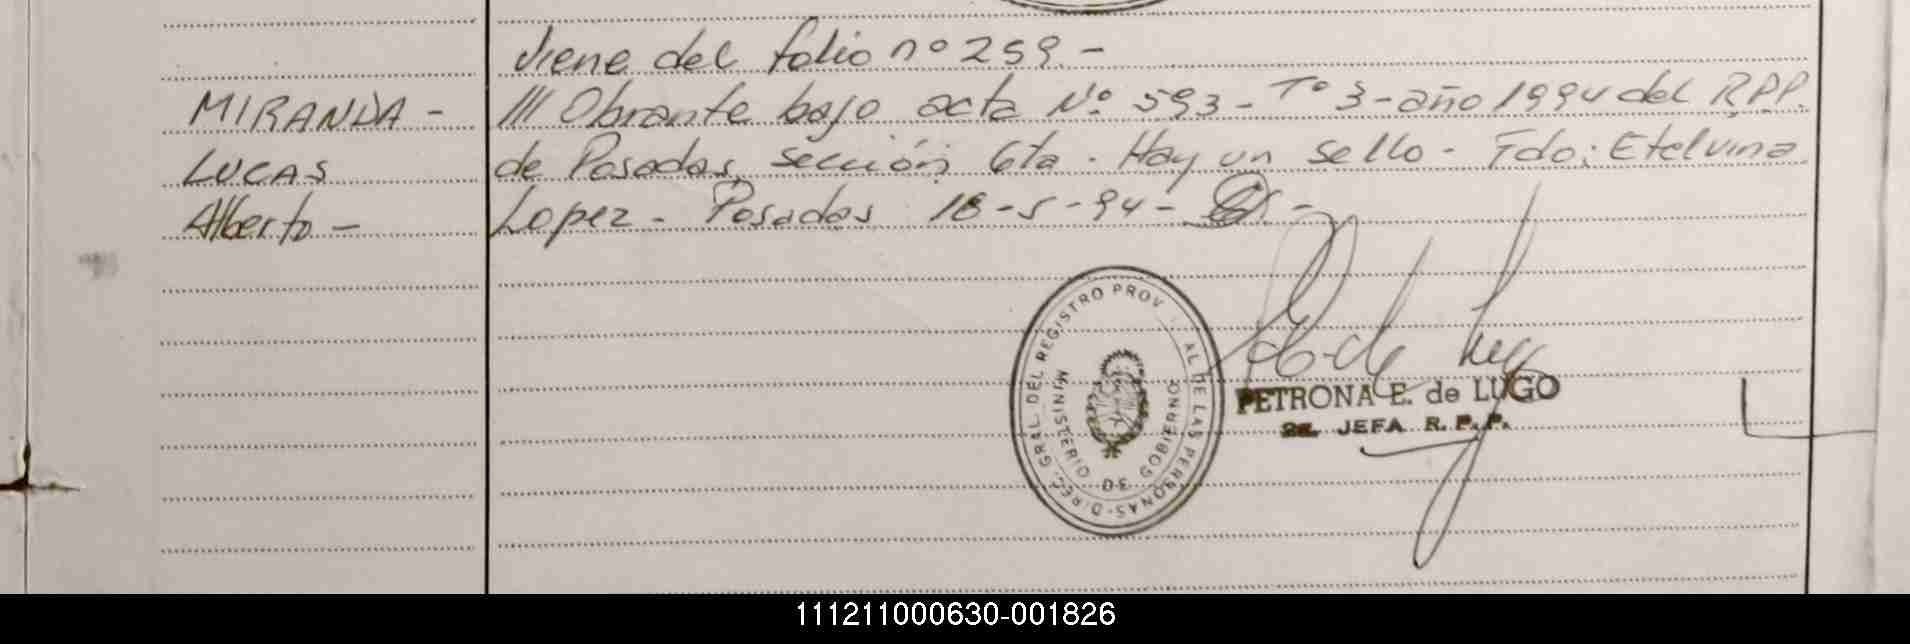 Viene del folio nº 259.-
MIRANDA -
LUCAS
Alberto -
/// Obrante bajo acta Nº 593 - Tº 3 - año 1994 del R.P.P.
de Posadas, sección 6ta. Hay un sello - Fdo: Etelvina
Lopez - Posadas, 18-5-94 -
DIREC. GRAL. DEL REGISTRO PROV AL DE LAS PERSONAS
MINISTERIO DE GOBIERNO
PETRONA E. de LUGO
JEFA R. P. P.
111211000630-001826